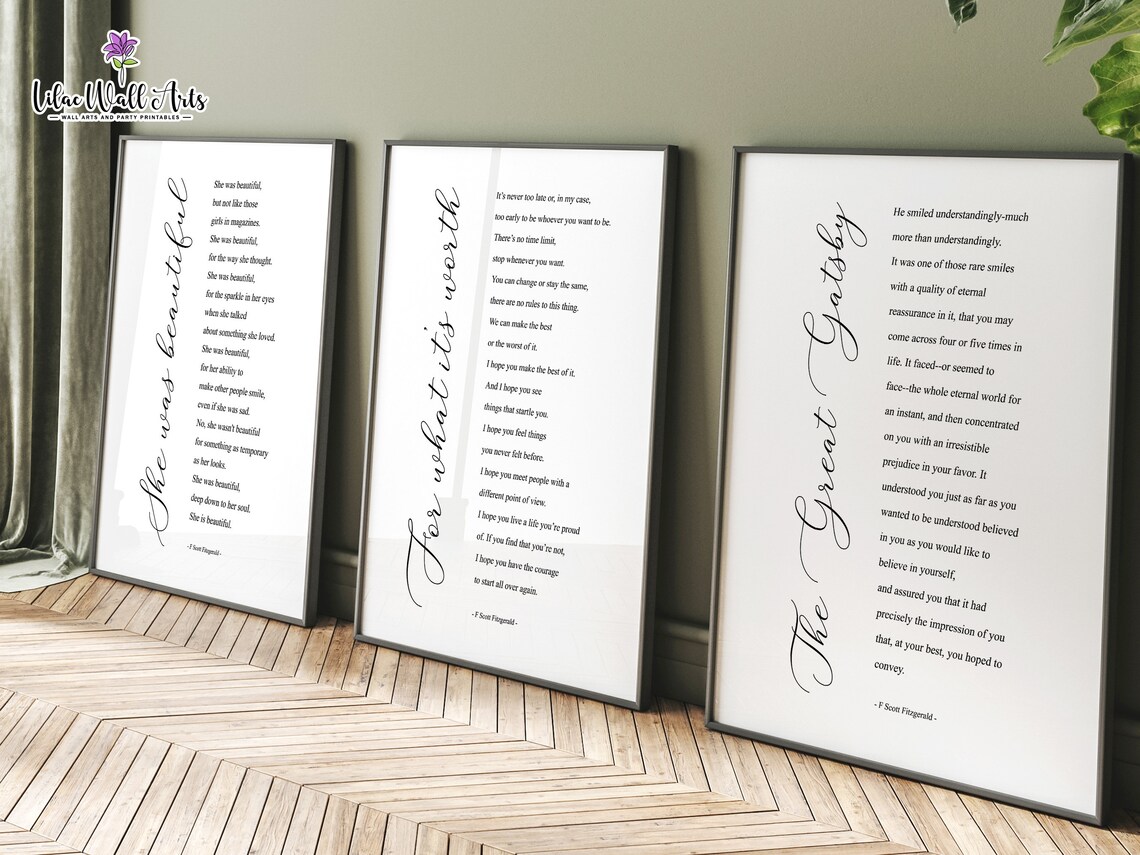 Lilac Wall Arts
WALL ARTS AND PARTY PRINTABLES
She was beautiful
She was beautiful,
but not like those
girls in magazines.
She was beautiful,
for the way she thought.
She was beautiful,
for the sparkle in her eyes
when she talked
about something she loved.
She was beautiful,
for her ability to
make other people smile,
even if she was sad.
No, she wasn't beautiful
for something as temporary
as her looks.
She was beautiful,
deep down to her soul.
She is beautiful.
- F Scott Fitzgerald -
For what it's worth
It's never too late or, in my case,
too early to be whoever you want to be.
There's no time limit,
stop whenever you want.
You can change or stay the same,
there are no rules to this thing.
We can make the best
or the worst of it.
I hope you make the best of it.
And I hope you see
things that startle you.
I hope you feel things
you never felt before.
I hope you meet people with a
different point of view.
I hope you live a life you're proud
of. If you find that you're not,
I hope you have the courage
to start all over again.
- F Scott Fitzgerald -
The Great Gatsby
He smiled understandingly-much
more than understandingly.
It was one of those rare smiles
with a quality of eternal
reassurance in it, that you may
come across four or five times in
life. It faced--or seemed to
face--the whole eternal world for
an instant, and then concentrated
on you with an irresistible
prejudice in your favor. It
understood you just as far as you
wanted to be understood believed
in you as you would like to
believe in yourself,
and assured you that it had
precisely the impression of you
that, at your best, you hoped to
convey.
- F Scott Fitzgerald -